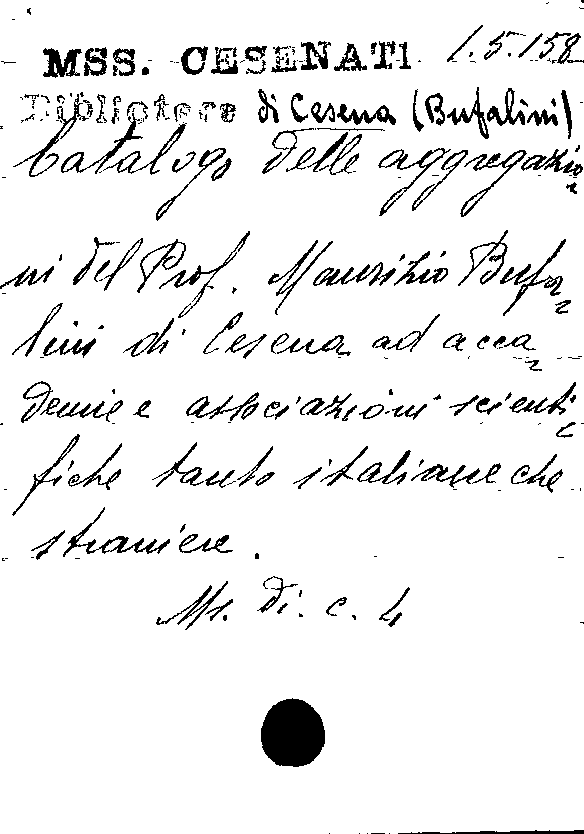 MSS. CESENATI 1.5.158
Biblioteca di Cesena (Bufalini)
Catalogo delle aggregazio
ni del Prof. Maurizio Bufa
lini di Cesena ad acca
demie e associazioni scienti
fiche tanto italiane che
straniere.
Ms. di. c. 4